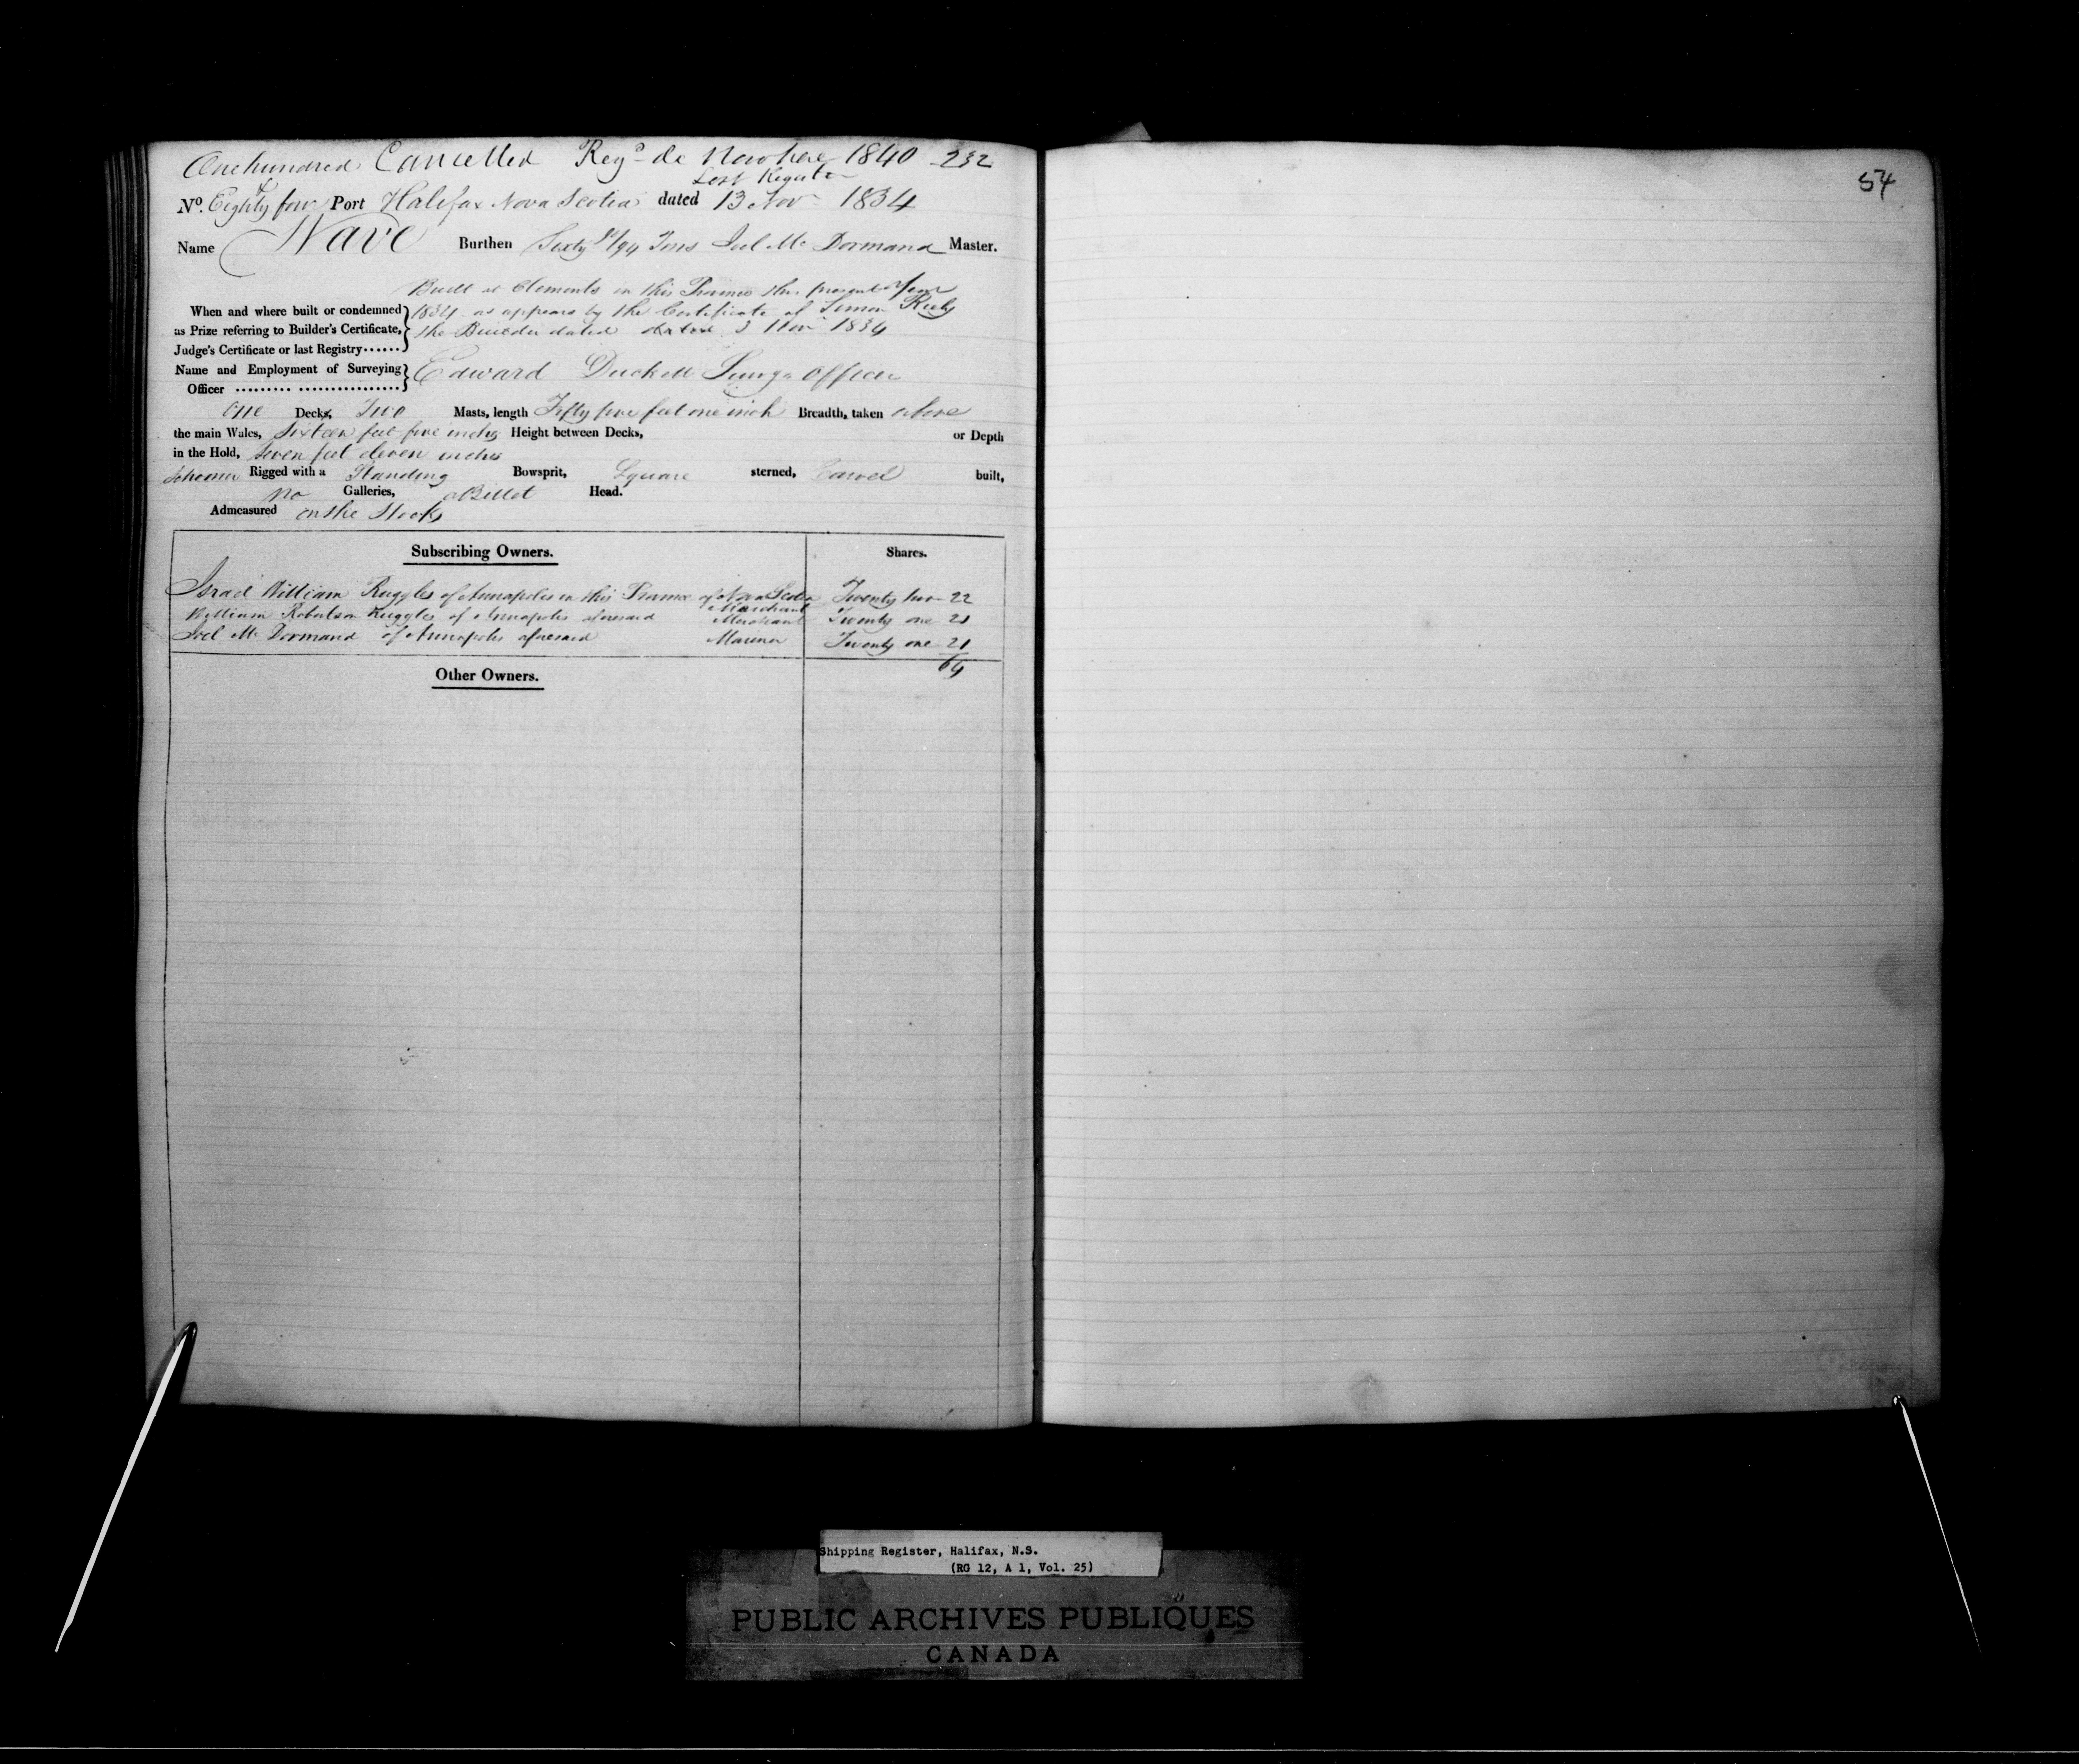 One hundred Cancelled Regd de Novo here 1840 232
Lost Register
54
No. Eighty four Port Halifax Nova Scotia dated 13 Nov 1834
Name Wave Burthen Sixty /94 Tons Joel Mc Dormand Master.
Built at Clements in this Province the present Year
When and where built or condemned 1834 as appears by the Certificate of Simon
as Prize referring to Builder's Certificate, the Builder dated dated 3 Nov 1834
Judge's Certificate or last Registry......
Name and Employment of Surveying Edward Duckett Survg Officer
Officer ......... ................
One Decks, Two Masts, length Fifty five feet one inch Breadth, taken above
the main Wales, Sixteen feet five inches Height between Decks, or Depth
in the Hold, Seven feet eleven inches
Schooner Rigged with a Standing Bowsprit, Square sterned, Carvel built,
no Galleries, Billet Head.
Admeasured on the Stocks
Subscribing Owners. Shares.
Israel William Ruggles of Annapolis in this Province of Nova Scotia Twenty two 22
Merchant
William Robertson Ruggles of Annapolis aforesaid Merchant Twenty one 21
Joel Mc Dormand of Annapolis aforesaid Mariner Twenty one 21
64
Other Owners.
Shipping Register, Halifax, N.S.
(RG 12, A 1, Vol. 25)
PUBLIC ARCHIVES PUBLIQUES
CANADA